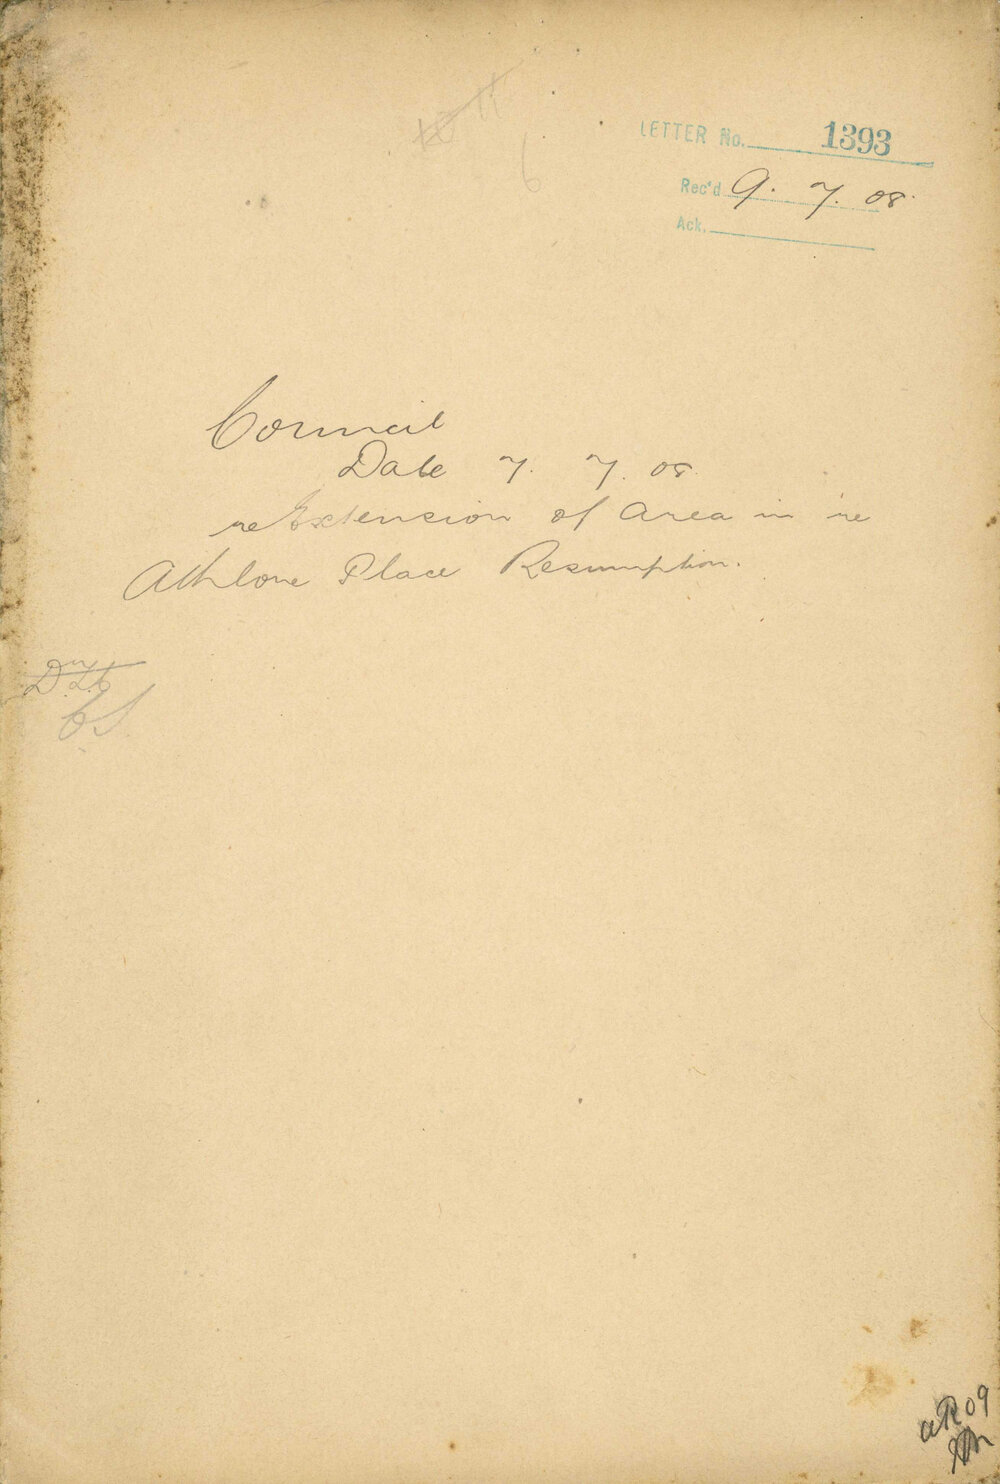 6
LETTER No. 1393
Rec'd 9. 7. 08.
Ack.
Council
Date 7. 7. 08
re Extension of Area in re
Athlone Place Resumption.